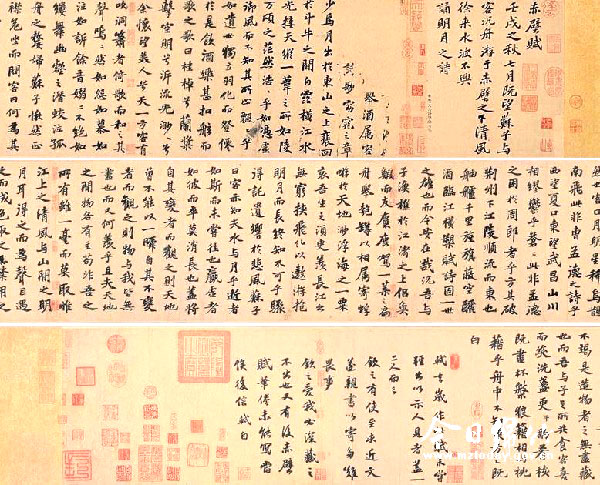 赤壁賦
壬戌之秋七月既望蘇子與
客泛舟游于赤壁之下清風
徐來水波不興
舉酒屬客
誦明月之詩
歌窈窕之章
少焉月出於東山之上裴回
於斗牛之間白露橫江水
光接天縱一葦之所如陵
萬頃之茫然浩浩乎如馮虛
御風而不知其所止飄飄乎
如遺世獨立羽化而登僊
於是飲酒樂甚扣舷而
歌之歌曰桂棹兮蘭槳
擊空明兮泝流光渺渺兮
余懷望美人兮天一方客有
吹洞簫者倚歌而和之其
聲嗚嗚然如怨如慕如
泣如訴餘音嫋嫋不絕如
縷舞幽壑之潛蛟泣孤
舟之嫠婦蘇子愀然正
襟危坐而問客曰何為其
然也客曰月明星稀烏鵲
南飛此非曹孟德之詩乎
西望夏口東望武昌山川
相繆鬱乎蒼蒼此非孟德
之困於周郎者乎方其破
荊州下江陵順流而東也
舳艫千里旌旗蔽空釃
酒臨江橫槊賦詩固一世
之雄也而今安在哉況吾與
子漁樵於江渚之上侶魚鰕
而友麋鹿駕一葉之扁
舟舉匏罇以相屬寄蜉
蝣於天地渺浮海之一粟
哀吾生之須臾羨長江之
無窮挾飛仙以遨遊抱
明月而長終知不可乎驟
得託遺響於悲風蘇子
曰客亦知夫水與月乎逝者
如斯而未嘗往也贏虛者
如彼而卒莫消長也蓋將
自其變者而觀之則天地
曾不能以一瞬自其不變
者而觀之則物與我皆無
盡也而又何羨乎且夫天地
之間物各有主苟非吾之
所有雖一毫而莫取惟
江上之清風與山間之明
月耳得之而為聲目遇
之而成色取之無禁用之
不竭是造物者之無盡藏
也而吾與子之所共食客喜
而笑洗盞更酌肴核
既盡杯盤狼藉相與枕
藉乎舟中不知東方之既
白
軾去歲作此賦未嘗
輕出以示人見者蓋一
二人而已
欽之有使至求近文
遂親書以寄多難
畏事
欽之愛我必深藏之
不出也又有後赤壁
賦筆倦未能寫當
俟後信軾白
今日